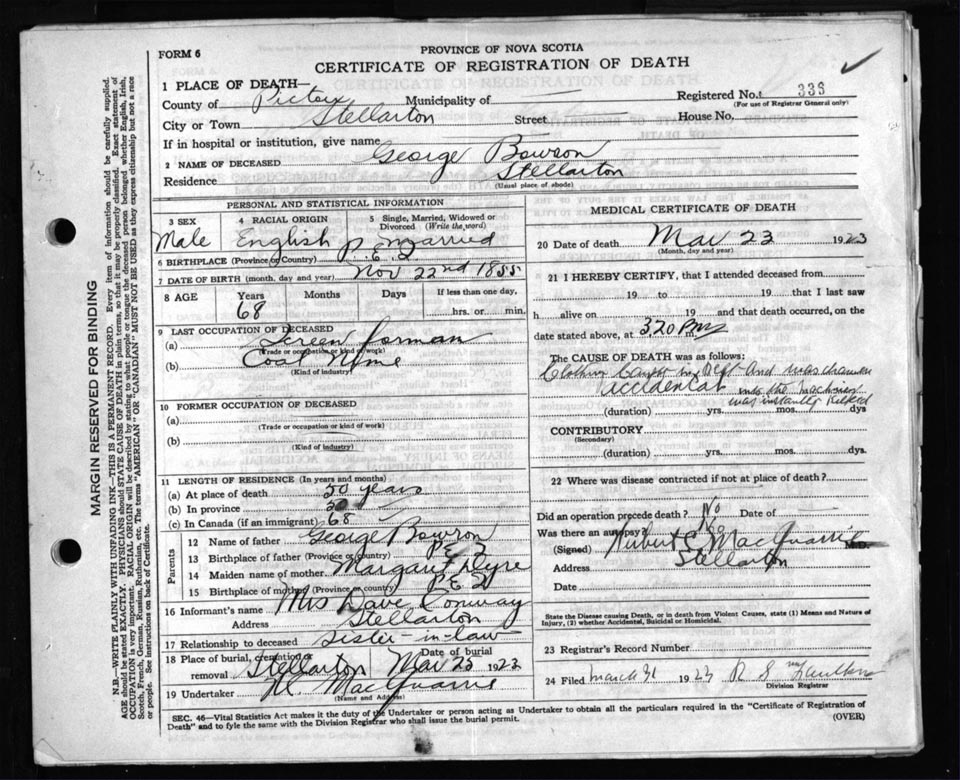 FORM 6
PROVINCE OF NOVA SCOTIA
CERTIFICATE OF REGISTRATION OF DEATH
1 PLACE OF DEATH—
County of Pictou Municipality of Registered No. 336
(For use of Registrar General only)
City or Town Stellarton Street House No.
If in hospital or institution, give name
2 NAME OF DECEASED George Bowron
Residence Stellarton
(Usual place of abode)
PERSONAL AND STATISTICAL INFORMATION
3 SEX 4 RACIAL ORIGIN 5 Single, Married, Widowed or Divorced (Write the word)
Male English Married
6 BIRTHPLACE (Province or Country) P.E.I
7 DATE OF BIRTH (month, day and year) Nov 22nd 1855
8 AGE Years Months Days If less than one day,
68 hrs. or min.
9 LAST OCCUPATION OF DECEASED
(a) Screen forman
(Trade or occupation or kind of work)
(b) Coal Mine
(Kind of industry)
10 FORMER OCCUPATION OF DECEASED
(a)
(Trade or occupation or kind of work)
(b)
(Kind of industry)
11 LENGTH OF RESIDENCE (In years and months)
(a) At place of death 50 years
(b) In province 50
(c) In Canada (if an immigrant) 68
Parents
12 Name of father George Bowron
13 Birthplace of father (Province or country) P E I
14 Maiden name of mother Margaret
15 Birthplace of mother (Province or country) P.E.I
16 Informant's name Mrs Dave Conway
Address Stellarton
17 Relationship to deceased Sister-in-law
18 Place of burial, cremation or removal Stellarton Date of burial Mar 25 1923
19 Undertaker MacQuarrie
(Name and Address)
MEDICAL CERTIFICATE OF DEATH
20 Date of death Mar 23 1923
(Month, day and year)
21 I HEREBY CERTIFY, that I attended deceased from
19 to 19 that I last saw
h alive on 19 and that death occurred, on
date stated above, at 3.20 PM
The CAUSE OF DEATH was as follows:
Clothing Caught in Belt And was drawn
accidental into the machinery
was instantly Killed
(duration) yrs. mos. dys
CONTRIBUTORY
(Secondary)
(duration) yrs. mos. dys.
22 Where was disease contracted if not at place of death?
Did an operation precede death? No Date of
Was there an autopsy? No
(Signed) MacQuarrie M.D.
Address Stellarton
Date
State the Disease causing Death, or in death from Violent Causes, state (1) Means and Nature of
Injury, (2) whether Accidental, Suicidal or Homicidal.
23 Registrar's Record Number
24 Filed March 31 1923 R S
Division Registrar
SEC. 46—Vital Statistics Act makes it the duty of the Undertaker or person acting as Undertaker to obtain all the particulars required in the "Certificate of Registration of
Death" and to fyle the same with the Division Registrar who shall issue the burial permit. (OVER)
MARGIN RESERVED FOR BINDING
N.B.—WRITE PLAINLY WITH UNFADING INK—THIS IS A PERMANENT RECORD. Every item of information should be carefully supplied.
AGE should be stated EXACTLY. PHYSICIANS should STATE CAUSE OF DEATH in plain terms, so that it may be properly classified. Exact statement of
OCCUPATION is very important. RACIAL ORIGIN will be described by stating to what people or tongue the deceased person belonged whether English, Irish,
Scotch, French, German, Russian, Ruthenian, etc. The terms "AMERICAN" OR "CANADIAN" MUST NOT BE USED as they express citizenship but not a race
or people. See instructions on back of Certificate.